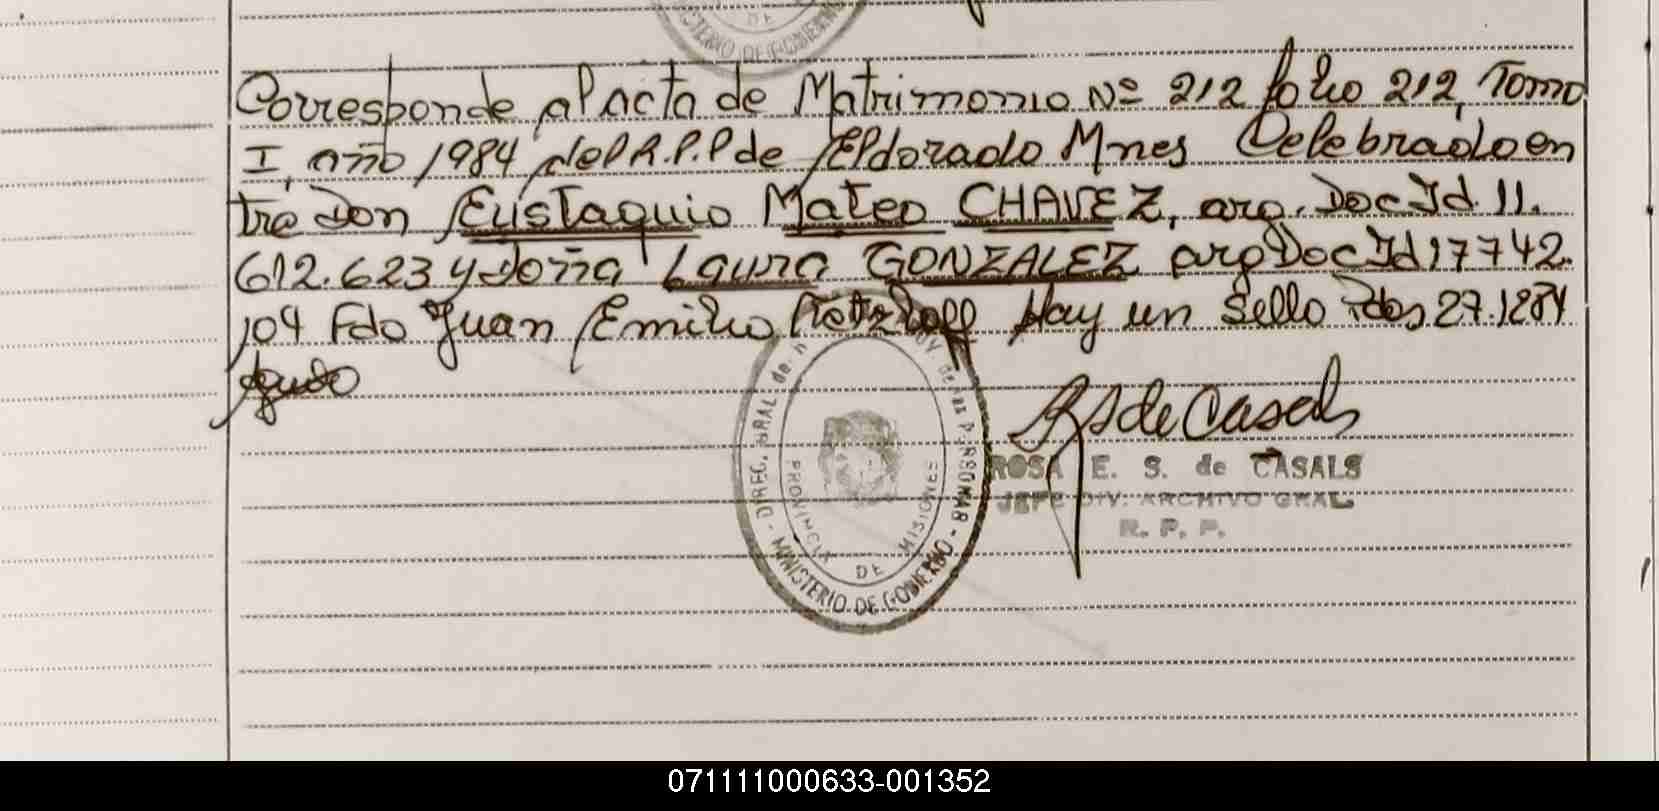 DE
MINISTERIO DE GOBIERNO
Corresponde al acta de Matrimonio Nº 212 folio 212, Tomo
I, año 1984 del R.P.P de Eldorado Mnes Celebrado en
tre Don Eustaquio Mateo CHAVEZ, arg. Doc Id. 11.
612.623 y doña Laura GONZALEZ arg Doc Id 17742.
104 Fdo Juan Emilio Hay un Sello Pdas 27.1284
RS de Casals
ROSA E. S. de CASALS
JEFE DIV. ARCHIVO GRAL
R. P. P.
DIREC. GRAL de las PERSONAS - MINISTERIO DE GOBIERNO -
PROVINCIA DE MISIONES
071111000633-001352